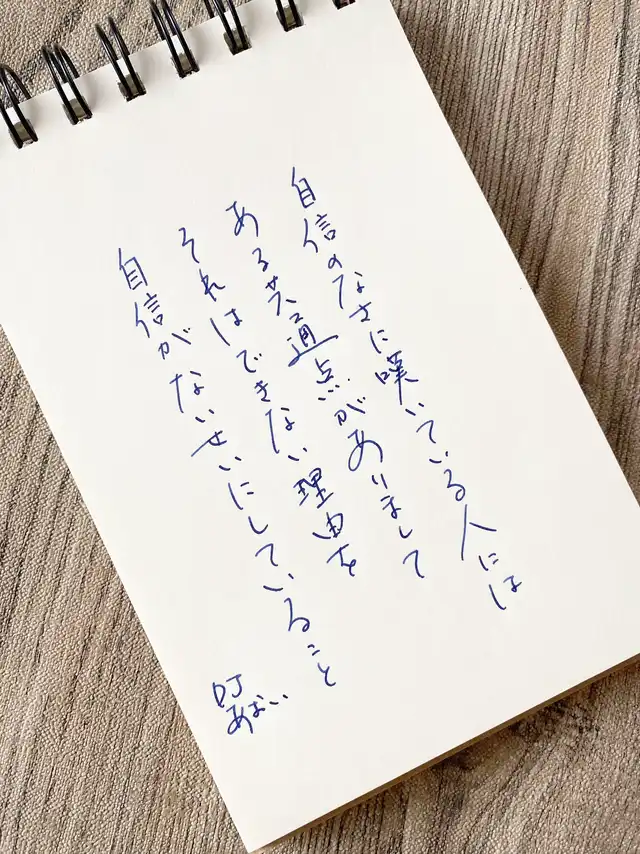 自信のなさに嘆いている人には
ある共通点がありまして
それはできない理由を
自信がないせいにしていること
DJ
あおい